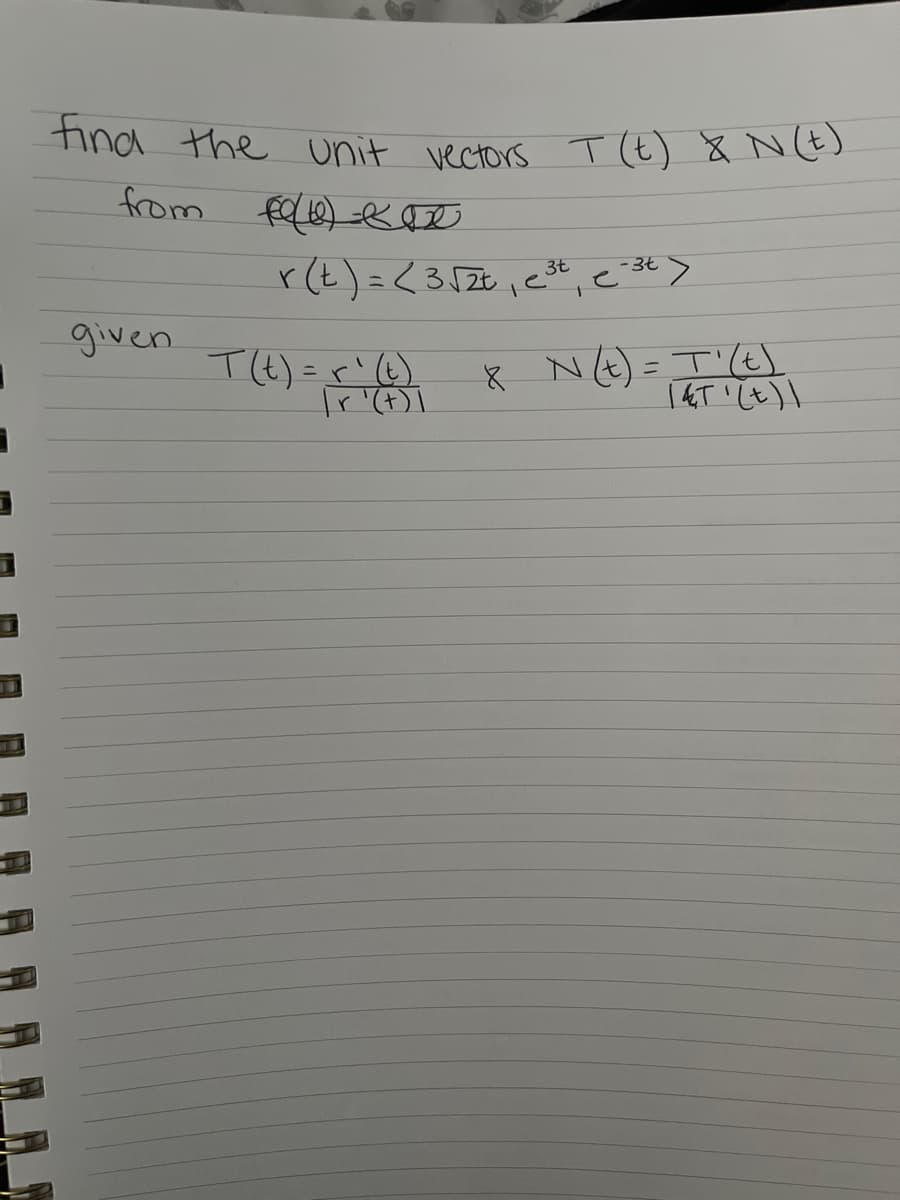 find the unit vectors T(t) & N(t)
from
r(t) = <3√2t, e^3t, e^-3t>
given T(t) = r'(t) / |r'(t)| & N(t) = T'(t) / |T'(t)|